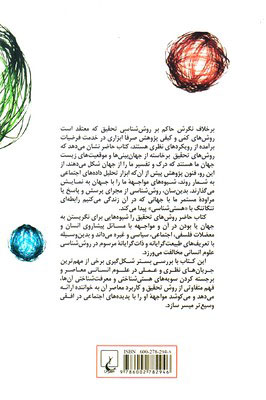 برخلاف نگرش حاکم بر روش‌شناسی تحقیق که معتقد است
روش‌های کمّی و کیفی پژوهش صرفا ابزاری در خدمت فرضیات
برآمده از رویکردهای نظری هستند، کتاب حاضر نشان می‌دهد که
روش‌های تحقیق برخاسته از جهان‌بینی‌ها و موقعیت‌های زیست
جهان ما هستند که درک و تفسیر ما را از جهان شکل می‌دهند. از
این رو، فنون پژوهش پیش از آن‌که ابزار تحلیل داده‌های اجتماعی
به شمار روند، شیوه‌های مواجهۀ ما را با جهان به نمایش
می‌گذارند. بدین‌سان، روش‌شناسی از مجرای پرسش و پاسخ یا
مراودۀ مستمر ما با جهانی که در آن زندگی می‌کنیم رابطه‌ای
تنگاتنگ با «هستی‌شناسی» پیدا می‌کند.
کتاب حاضر روش‌های تحقیق را شیوه‌هایی برای نگریستن به
جهان یا بودن در آن و مواجهه با مسائل پیشاروی انسان و
معضلات فلسفی، اجتماعی، سیاسی و غیره می‌داند و بدین‌وسیله
با تعریف‌های طبیعت‌گرایانه و ذات‌گرایانۀ مرسوم در روش‌شناسی
علوم انسانی مخالفت می‌ورزد.
این کتاب با بررسی بستر شکل‌گیری برخی از مهم‌ترین
جریان‌های نظری و عملی در علوم انسانی معاصر و
برجسته کردن سویه‌های هستی‌شناختی و معرفت‌شناختی آن‌ها،
فهم متفاوتی از روش تحقیق و کاربرد معاصر آن به خواننده ارائه
می‌دهد و می‌کوشد مواجهۀ او را با پدیده‌های اجتماعی در افقی
وسیع‌تر میسر سازد.
ISBN 600-278-294-6
9786002782946